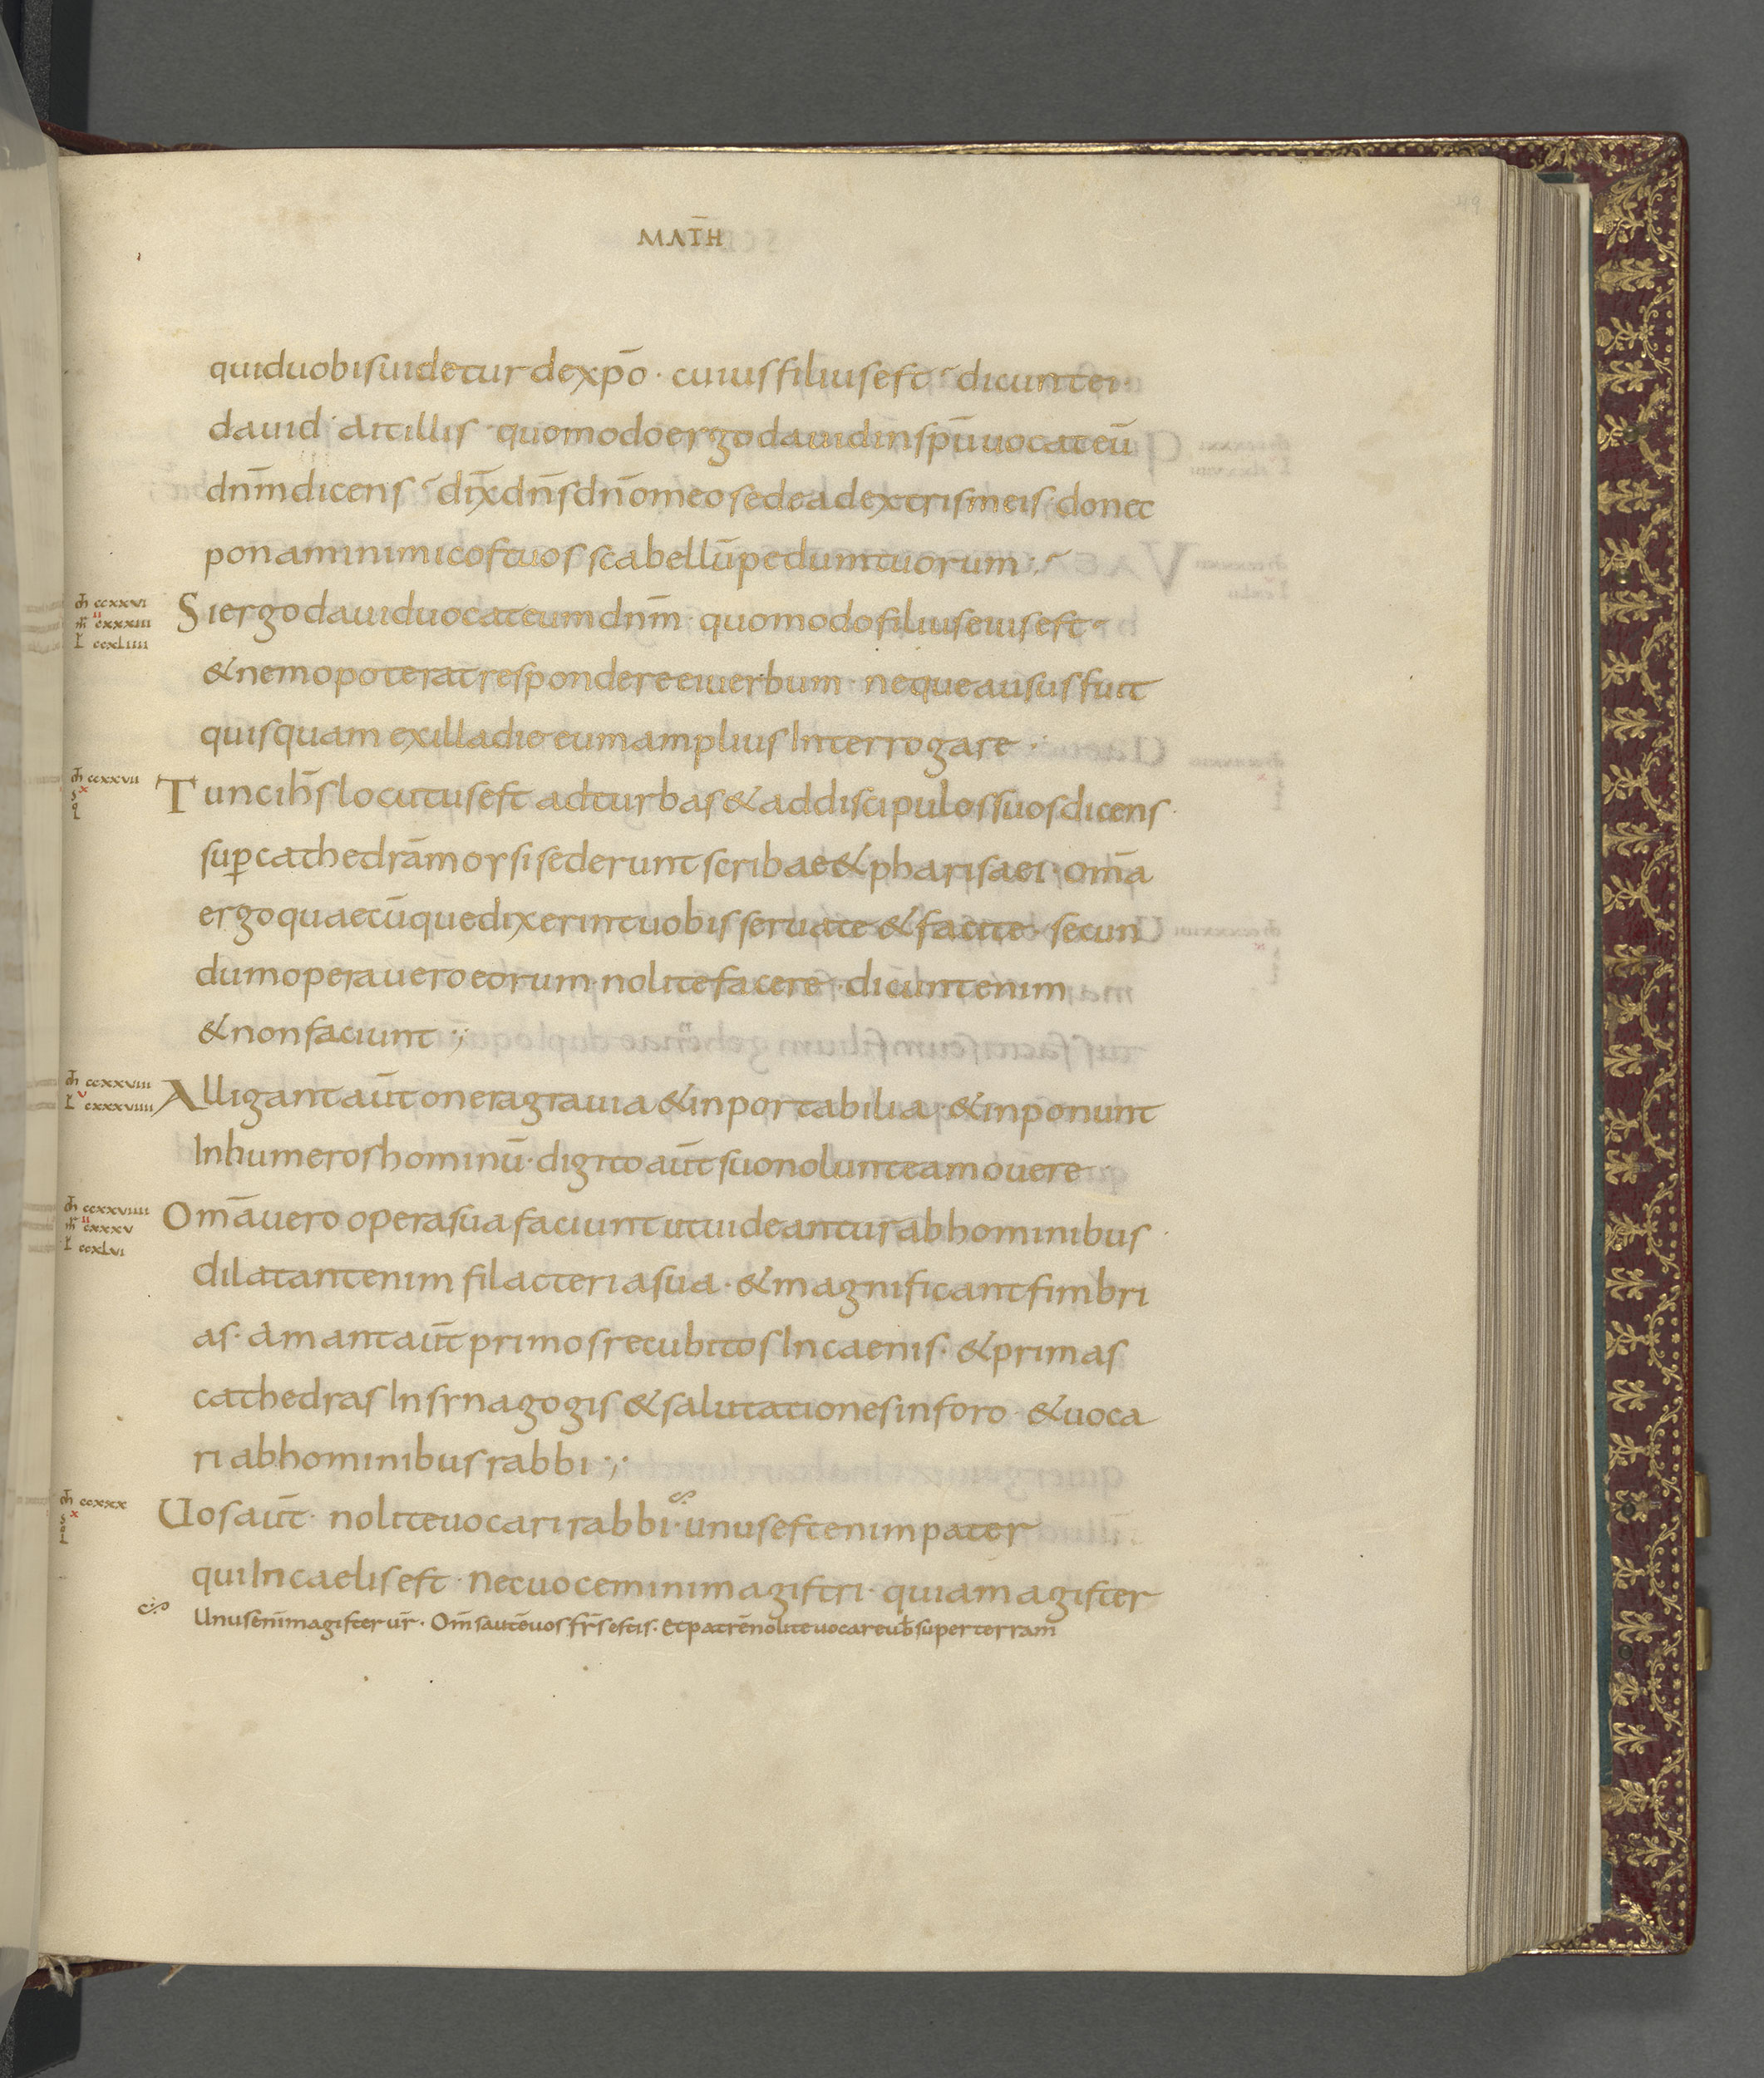 MATH̄
quid uobis uidetur de xp̄o · cuius filius est · dicunt ei ·
dauid · ait illis · quomodo ergo dauid in sp̄u uocat eū
dn̄m dicens · dix̄ dn̄s dn̄o meo sede a dextris meis · donec
ponam inimicos tuos scabellū pedum tuorum ·
m̄h ccxxvi
m̄r cxxxiii
ii
l ccxliiii
Si ergo dauid uocat eum dn̄m · quomodo filius eius est ·
& nemo poterat respondere ei uerbum · neque ausus fuit
quisquam ex illa die eum amplius Interrogare ·
m̄h ccxxvii
x
Tunc ih̄s locutus est ad turbas & ad discipulos suos dicens ·
suꝑ cathedrā morsi sederunt scribae & pharisaei · om̄a
ergo quaecūque dixerint uobis seruate & facite · secun
dum opera uero eorum nolite facere · dicunt enim
& non faciunt ·,
m̄h ccxxviii
v
l cxxxviiii
Alligant aūt onera grauia & inportabilia · & inponunt
In humeros hominū · digito aūt suo nolunt ea mouere
m̄h ccxxviiii
ii
m̄r cxxxv
l ccxlvi
Om̄a uero opera sua faciunt ut uideantur ab hominibus ·
dilatant enim filacteria sua · & magnificant fimbri
as · Amant aūt primos recubitos In caenis · & primas
cathedras In synagogis & salutationes in foro · & uoca
ri ab hominibus rabbi ·,·
m̄h ccxxx
x
Uos aūt · nolite uocari rabbi · unus est enim pater
qui In caelis est · Nec uocemini magistri · quia magister
Unus enī magister ur̄ · Om̄s autē uos fr̄s estis · Et patrē nolite uocare ub̄ super terram